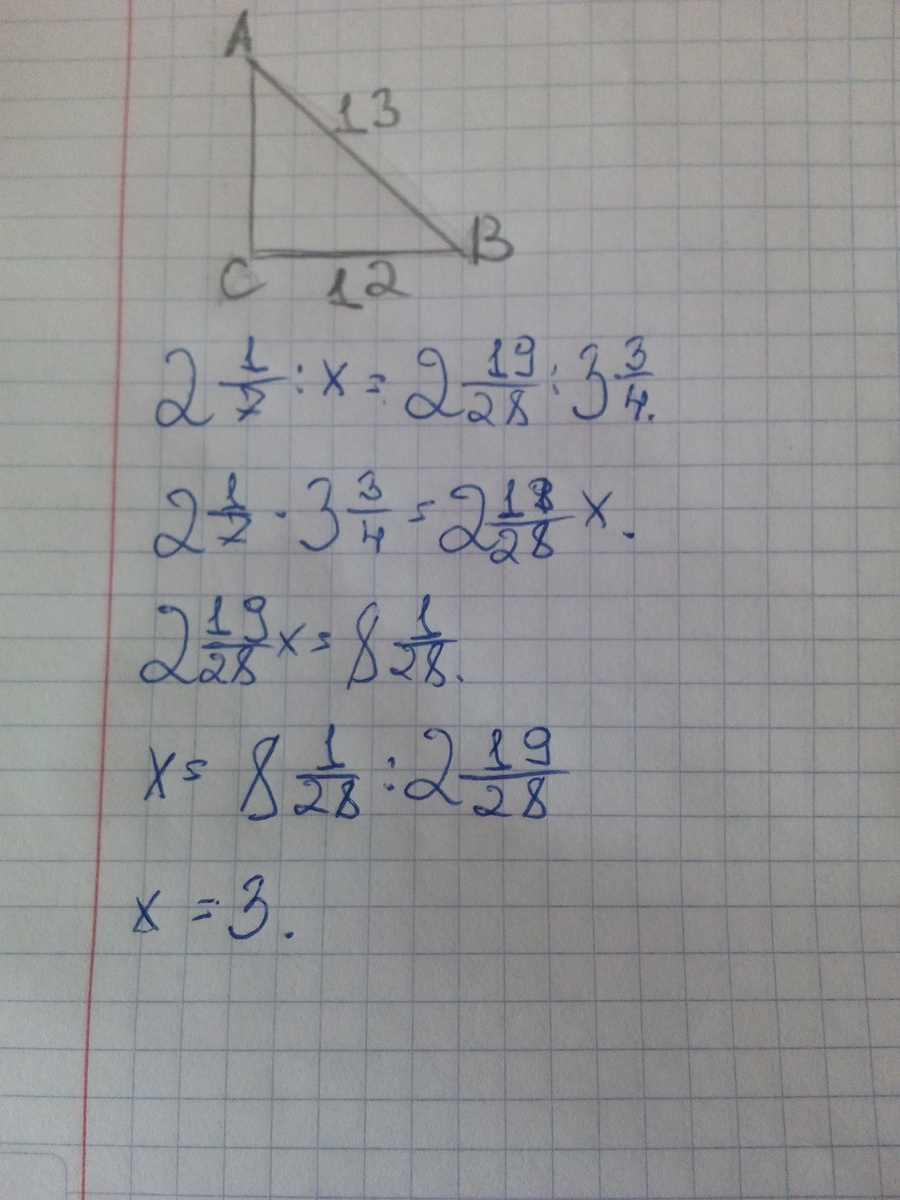 A
13
B
C
12
2 1/7 : x = 2 19/28 : 3 3/4.
2 1/7 · 3 3/4 = 2 19/28 x.
2 19/28 x = 8 1/28.
x = 8 1/28 : 2 19/28
x = 3.